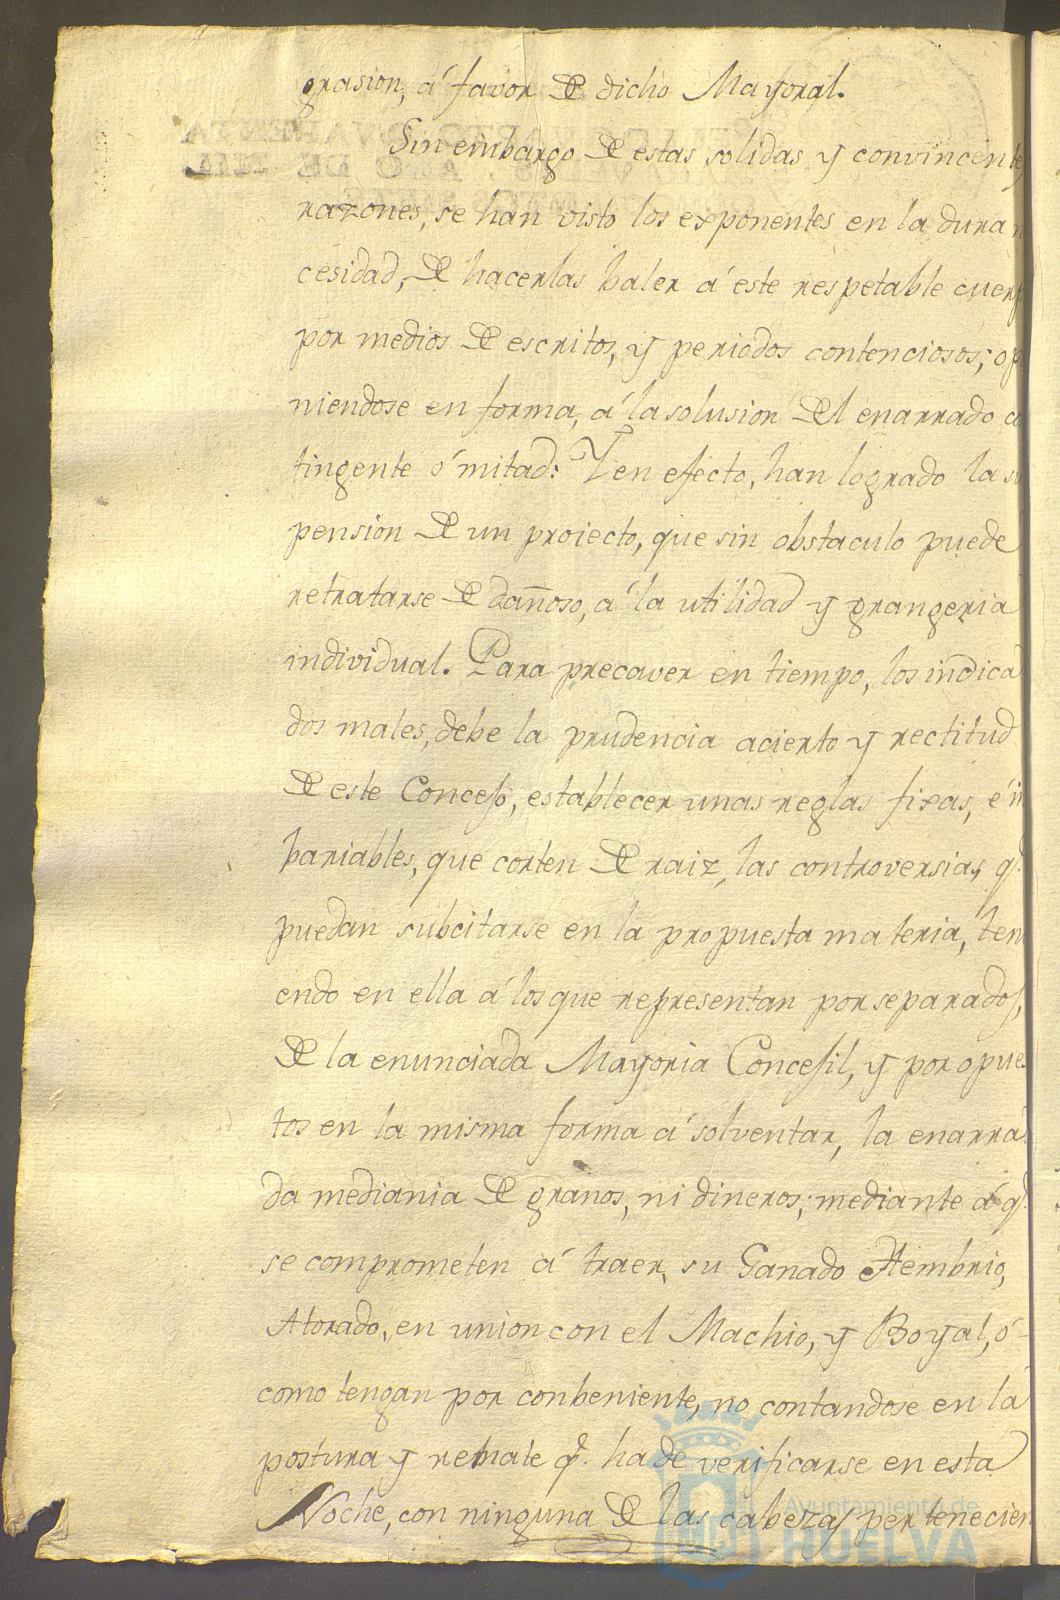 grasion, á favor de dicho Mayoral.
Sin embargo de estas solidas y convincente
razones, se han visto los exponentes en la dura n
cesidad, de hacerlas baler á este respetable cuerp
por medios de escritos, y periodos contenciosos; op
niendose en forma, á la solusion del enarrado co
tingente ó mitad: Y en efecto, han logrado la su
pension de un proiecto, que sin obstaculo puede
retratarse de dañoso, á la utilidad y grangeria
individual. Para precaver en tiempo, los indica
dos males, debe la prudencia acierto y rectitud
de este Concejo, establecer unas reglas fixas, é in
bariables, que corten de raiz, las controversias, q.
puedan subcitarse en la propuesta materia, teni
endo en ella á los que representan por separados,
de la enunciada Mayoria Concejil, y por opues
tos en la misma forma á solventar, la enarra
da mediania de granos, ni dineros; mediante á q.
se comprometen á traer, su Ganado Hembrio,
Atorado, en union con el Machio, y Boyal, ó
como tengan por conbeniente, no contandose en la
postura y remate q. ha de verificarse en esta
Noche, con ninguna de las cabezas pertenecien
Ayuntamiento de
HUELVA